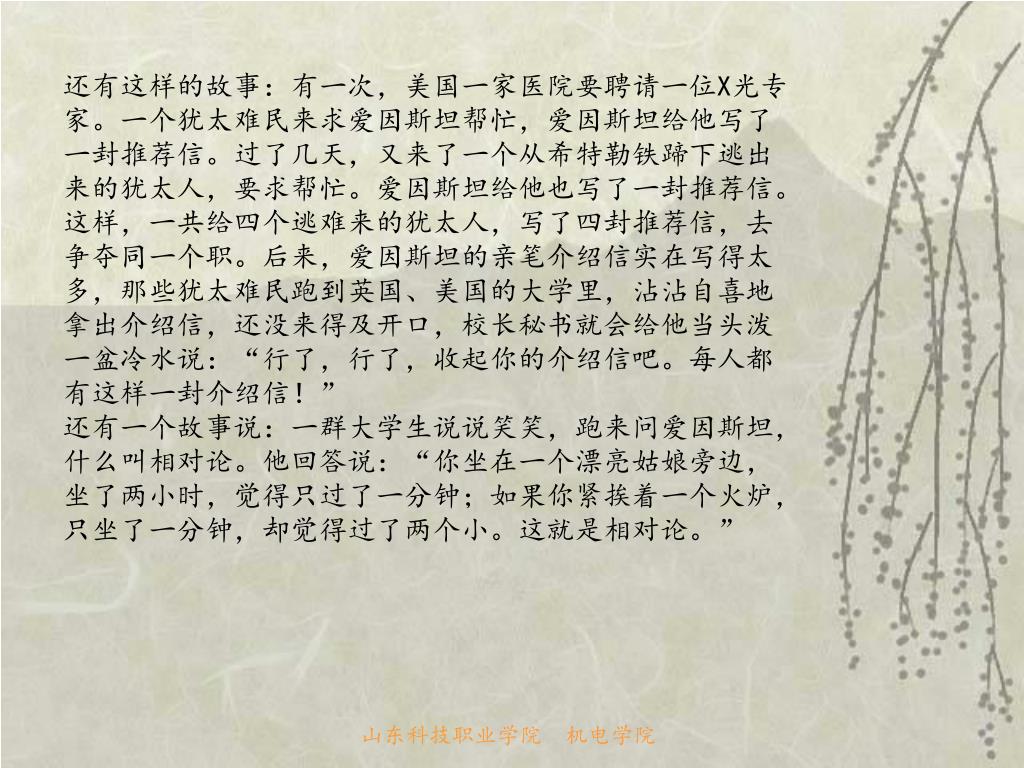 还有这样的故事：有一次，美国一家医院要聘请一位X光专
家。一个犹太难民来求爱因斯坦帮忙，爱因斯坦给他写了
一封推荐信。过了几天，又来了一个从希特勒铁蹄下逃出
来的犹太人，要求帮忙。爱因斯坦给他也写了一封推荐信。
这样，一共给四个逃难来的犹太人，写了四封推荐信，去
争夺同一个职。后来，爱因斯坦的亲笔介绍信实在写得太
多，那些犹太难民跑到英国、美国的大学里，沾沾自喜地
拿出介绍信，还没来得及开口，校长秘书就会给他当头泼
一盆冷水说：“行了，行了，收起你的介绍信吧。每人都
有这样一封介绍信！”
还有一个故事说：一群大学生说说笑笑，跑来问爱因斯坦，
什么叫相对论。他回答说：“你坐在一个漂亮姑娘旁边，
坐了两小时，觉得只过了一分钟；如果你紧挨着一个火炉，
只坐了一分钟，却觉得过了两个小。这就是相对论。”
山东科技职业学院　机电学院